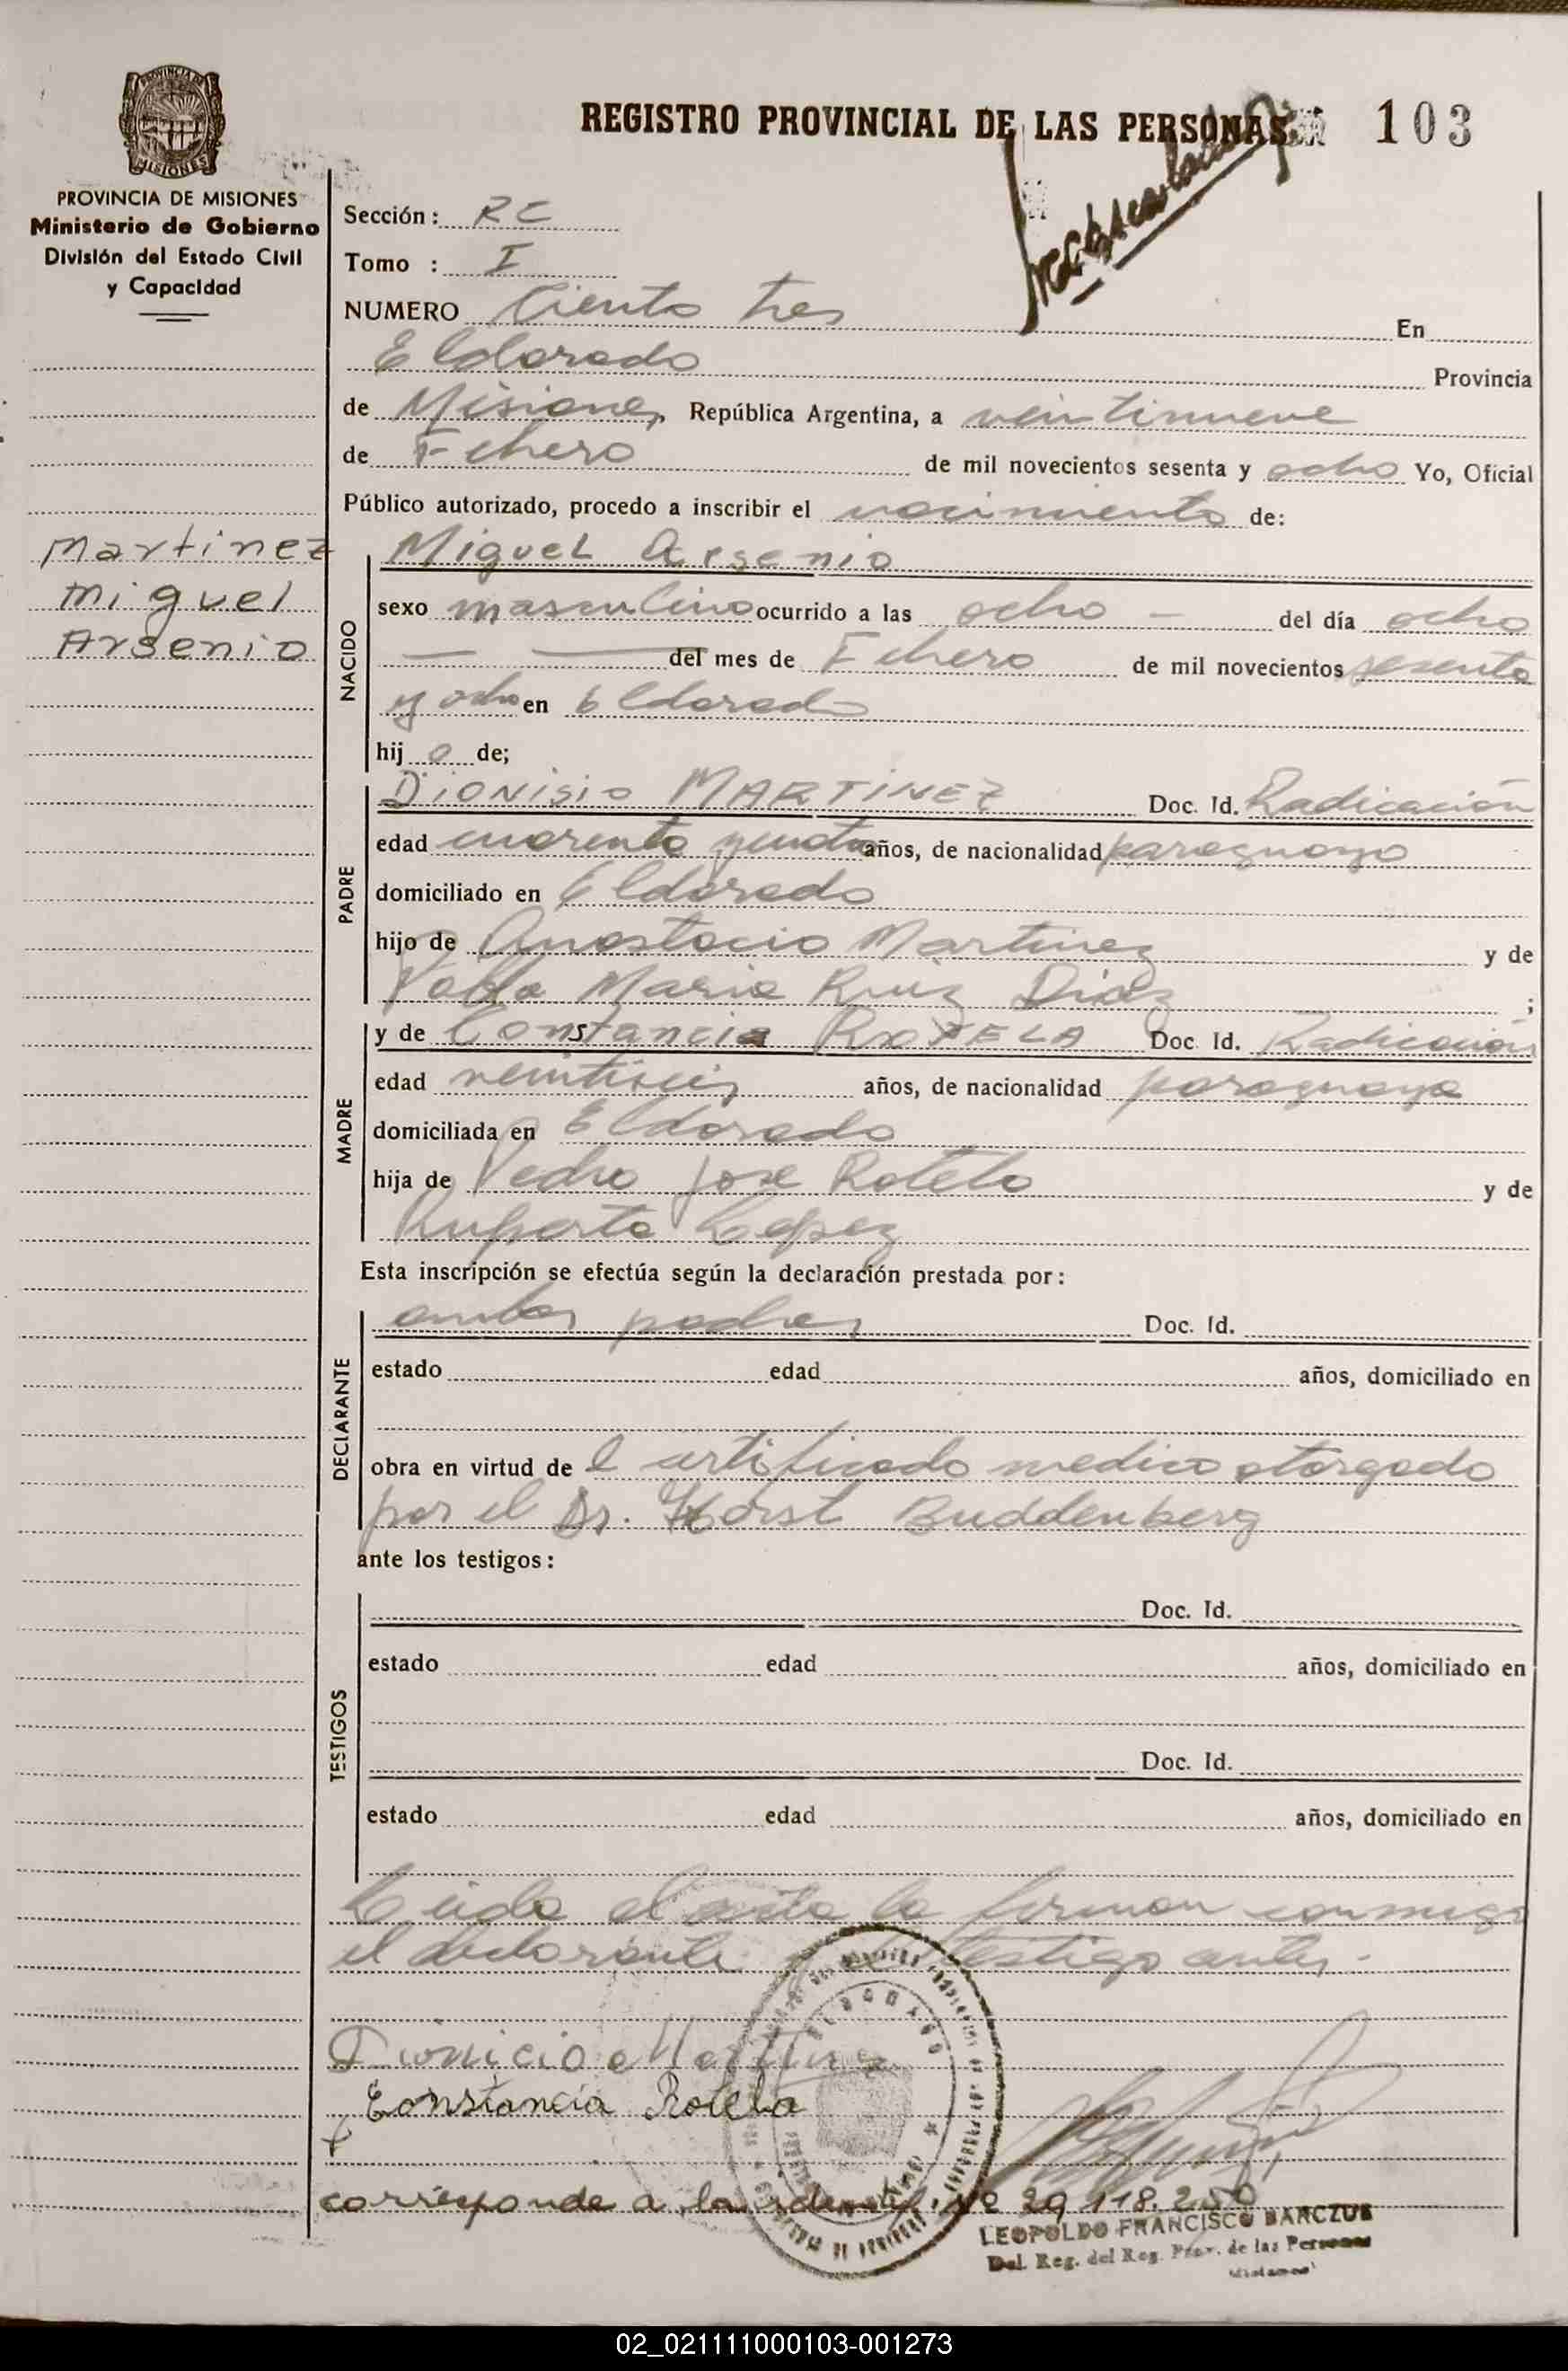 REGISTRO PROVINCIAL DE LAS PERSONAS 103
PROVINCIA DE MISIONES
MISIONES
PROVINCIA DE MISIONES
Ministerio de Gobierno
División del Estado Civil
y Capacidad
Martinez
Miguel
Arsenio
Sección: RC
Tomo : I
NUMERO Ciento tres En
Eldorado Provincia
de Misiones, República Argentina, a veintinueve
de Febrero de mil novecientos sesenta y ocho Yo, Oficial
Público autorizado, procedo a inscribir el nacimiento de:
NACIDO
Miguel Arsenio
sexo masculino ocurrido a las ocho — del día ocho
— — del mes de Febrero de mil novecientos sesenta
y ocho en Eldorado
hij o de;
PADRE
Dionisio MARTINEZ Doc. Id. Radicación
edad cuarenta y cuatro años, de nacionalidad paraguayo
domiciliado en Eldorado
hijo de Anastacio Martinez y de
Pabla Maria Ruiz Diaz ;
MADRE
y de Constancia ROTELA Doc. Id. Radicación
edad veintiseis años, de nacionalidad paraguaya
domiciliada en Eldorado
hija de Pedro Jose Rotela y de
Ruperta Lopez
Esta inscripción se efectúa según la declaración prestada por:
DECLARANTE
ambos padres Doc. Id.
estado edad años, domiciliado en
obra en virtud de l certificado medico otorgado
por el Dr. Horst Buddenberg
ante los testigos:
TESTIGOS
Doc. Id.
estado edad años, domiciliado en
Doc. Id.
estado edad años, domiciliado en
Leida el acta la firman conmigo
el declarante testigo antes.
Dionicio Martinez
Constancia Rotela
corresponde a la ident. Nº 29.118.250
LEOPOLDO FRANCISCO BARCZUK
Del. Reg. del Reg. Prov. de las Personas
Misiones
02_021111000103-001273